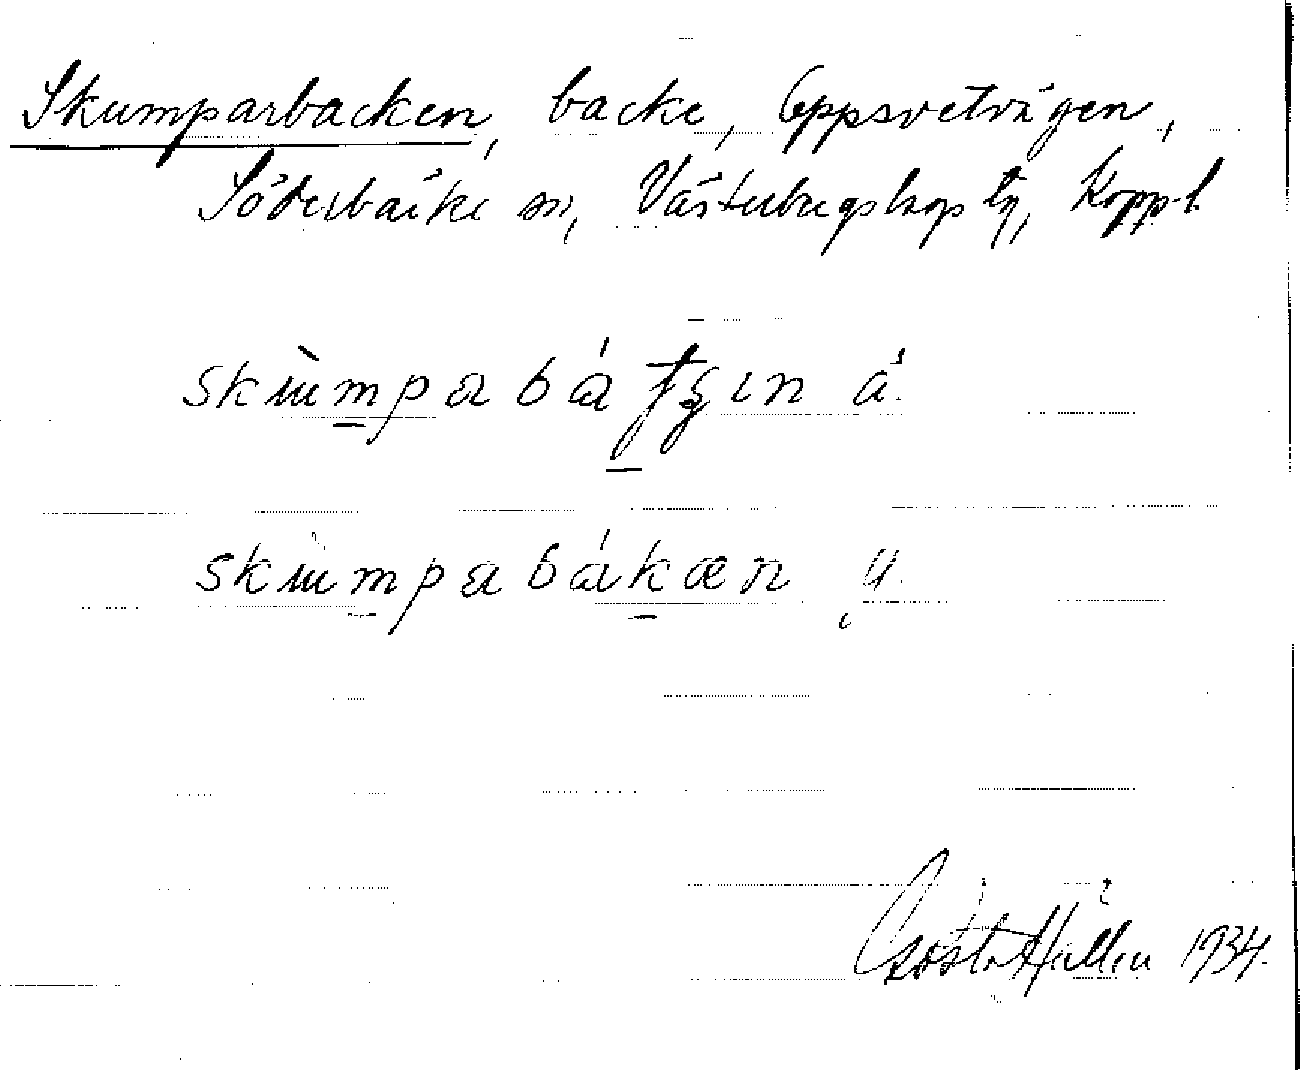 Skumparbacken, backe, Eppsvetvägen,
Söderbärke sn, Västerbergslags tg, Kopp. l.
skumpabátʃın á.
skumpabákæn
Gösta Hallén 1934.